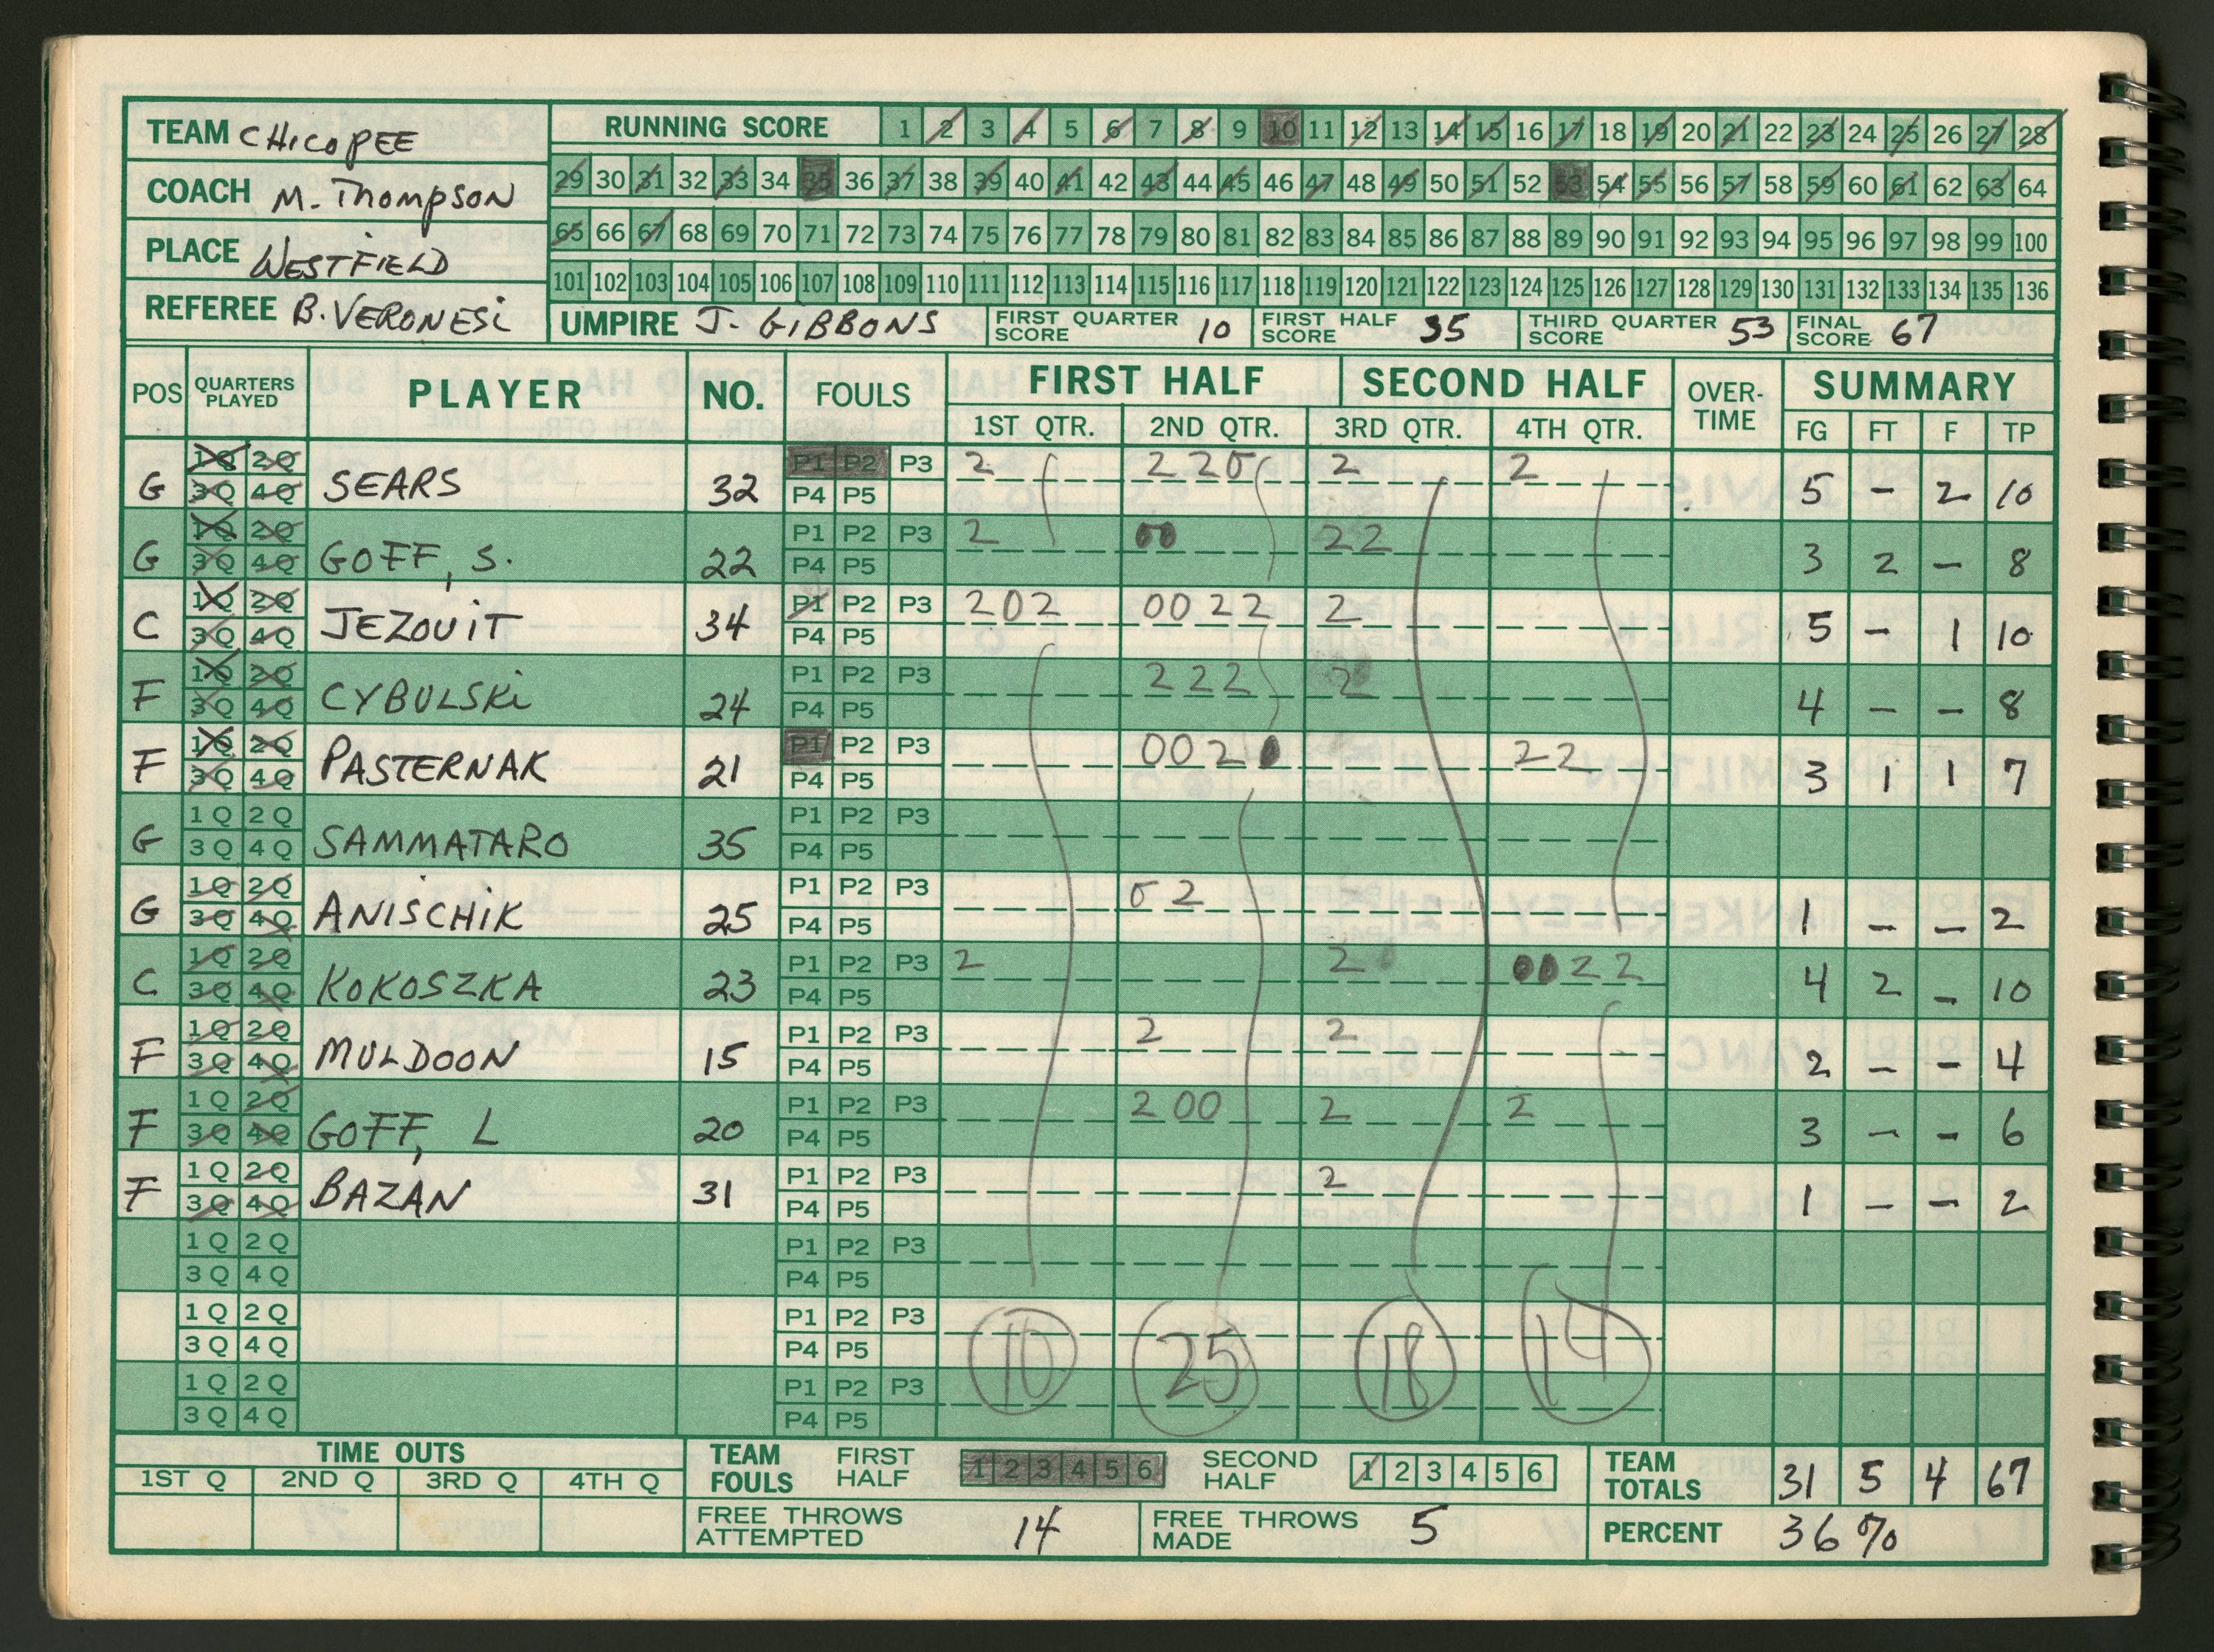 TEAM CHICOPEE
COACH M. Thompson
PLACE WESTFIELD
REFEREE B. VERONESI
RUNNING SCORE 1 2 3 4 5 6 7 8 9 10 11 12 13 14 15 16 17 18 19 20 21 22 23 24 25 26 27 28
29 30 31 32 33 34 35 36 37 38 39 40 41 42 43 44 45 46 47 48 49 50 51 52 53 54 55 56 57 58 59 60 61 62 63 64
65 66 67 68 69 70 71 72 73 74 75 76 77 78 79 80 81 82 83 84 85 86 87 88 89 90 91 92 93 94 95 96 97 98 99 100
101 102 103 104 105 106 107 108 109 110 111 112 113 114 115 116 117 118 119 120 121 122 123 124 125 126 127 128 129 130 131 132 133 134 135 136
UMPIRE J. GIBBONS FIRST QUARTER SCORE 10 FIRST HALF SCORE 35 THIRD QUARTER SCORE 53 FINAL SCORE 67
POS QUARTERS PLAYED PLAYER NO. FOULS FIRST HALF SECOND HALF OVER-TIME SUMMARY
1ST QTR. 2ND QTR. 3RD QTR. 4TH QTR. FG FT F TP
1Q 2Q P1 P2 P3 2 2 2 0 2 2
G 3Q 4Q SEARS 32 P4 P5 5 - 2 10
1Q 2Q P1 P2 P3 2 00 22
G 3Q 4Q GOFF, S. 22 P4 P5 3 2 - 8
1Q 2Q P1 P2 P3 202 0022 2
C 3Q 4Q JEZOUIT 34 P4 P5 5 - 1 10
1Q 2Q P1 P2 P3 222 2
F 3Q 4Q CYBULSKI 24 P4 P5 4 - - 8
1Q 2Q P1 P2 P3 0020 22
F 3Q 4Q PASTERNAK 21 P4 P5 3 1 1 7
1Q 2Q P1 P2 P3
G 3Q 4Q SAMMATARO 35 P4 P5
1Q 2Q P1 P2 P3 02
G 3Q 4Q ANISCHIK 25 P4 P5 1 - - 2
1Q 2Q P1 P2 P3 2 2 0022
C 3Q 4Q KOKOSZKA 23 P4 P5 4 2 - 10
1Q 2Q P1 P2 P3 2 2
F 3Q 4Q MULDOON 15 P4 P5 2 - - 4
1Q 2Q P1 P2 P3 200 2 2
F 3Q 4Q GOFF, L 20 P4 P5 3 - - 6
1Q 2Q P1 P2 P3 2
F 3Q 4Q BAZAN 31 P4 P5 1 - - 2
1Q 2Q P1 P2 P3
3Q 4Q P4 P5
1Q 2Q P1 P2 P3
3Q 4Q P4 P5 10 25 18 14
1Q 2Q P1 P2 P3
3Q 4Q P4 P5
TIME OUTS
1ST Q 2ND Q 3RD Q 4TH Q
TEAM FOULS FIRST HALF 1 2 3 4 5 6 SECOND HALF 1 2 3 4 5 6
TEAM TOTALS 31 5 4 67
FREE THROWS ATTEMPTED 14 FREE THROWS MADE 5 PERCENT 36%